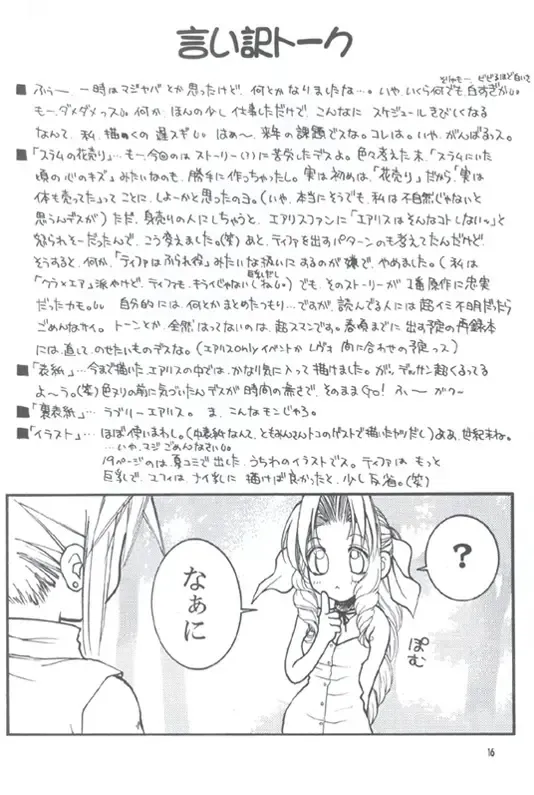 言い訳トーク
そりゃもー、ビビるほど白いて
■ ふぅー、一時はマジヤバとか思ったけど、何とかなりましたな…。いや、いくら何でも白すぎかしら。
もー、ダメダメっス。何か、ほんの少し仕事しただけで、こんなに スケジュールきびしくなる
なんて、私、描くの遅スギ。はぁ〜、来年の課題でスな。コレは。いや、がんばるっス。
■「スラムの花売り」…も〜今回のは ストーリー(?)に苦労したデスよ。色々考えた末、「スラムにいた
頃の心のキズ」みたいなのも、勝手に作っちゃったし。実は初めは、「花売り」だから「実は
体も売ってたよ」ってことに、しよーかと思ったのヨ。(いや、本当にそうでも、私は不自然じゃないと
思うんデスが)ただ、身売りの人にしちゃうと、エアリスファンに「エアリスはそんなコトしないっ」と
怒られそーだったんで、こう考えました。(笑)あと、ティファを出すパターンのも考えてたんだけど、
そうすると、何か、「ティファはふられ役」みたいな扱いにするのが 嫌で、やめました。(私は
「クラ×エア」派やけど、ティファも、もうイじゃない)でも、そのストーリーが 1番原作に忠実
だったカモ。自分的には、何とかまとめたつもり…ですが、読んでる人には 超イミ不明だったら
ごめんなサイ。トーンとか、全然はってないのは、超スマンです。春頃までに 出す予定の再録本
には、直して、のせたいものデスな。(エアリスonlyイベントか レヴォ 向に合わせの予定っス)
■「表紙」…今まで描いたエアリスの中では、かなり気に入って描けました。が、デッサン超くるってる
よ〜う。(笑)色ヌリの前に気づいたんデスが時間の無さで、そのままGo! ふ〜 がク〜
■「裏表紙」… ラブリーエアリス。ま、こんなモンじゃろ。
■「イラスト」… ほぼ使いまわし。(中表紙なんて、ともみんさんトコのゲストで描いたヤツだし)ああ、世紀末ね。
…いや、マジごめんなさい。
19ページのは、夏コミで出した、うちわのイラストでス。ティファは もっと
巨乳で、ユフィは、ナイ乳に 描けば良かったと、少し反省。(笑)
なぁに
?
ぽむ
16